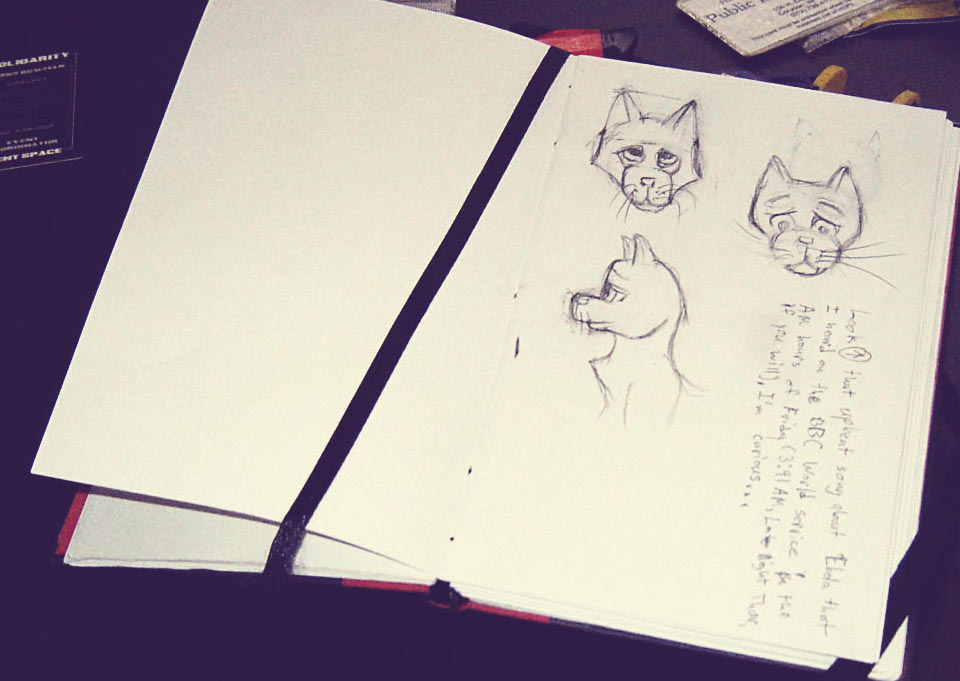 OLIDARITY
EVENT
ENT SPACE
Public
Look @ that upbeat song about Ebola that
I heard on the BBC World service in the
AM hours of Friday (3:41 AM, Late Night Thur,
if you will), I'm curious...